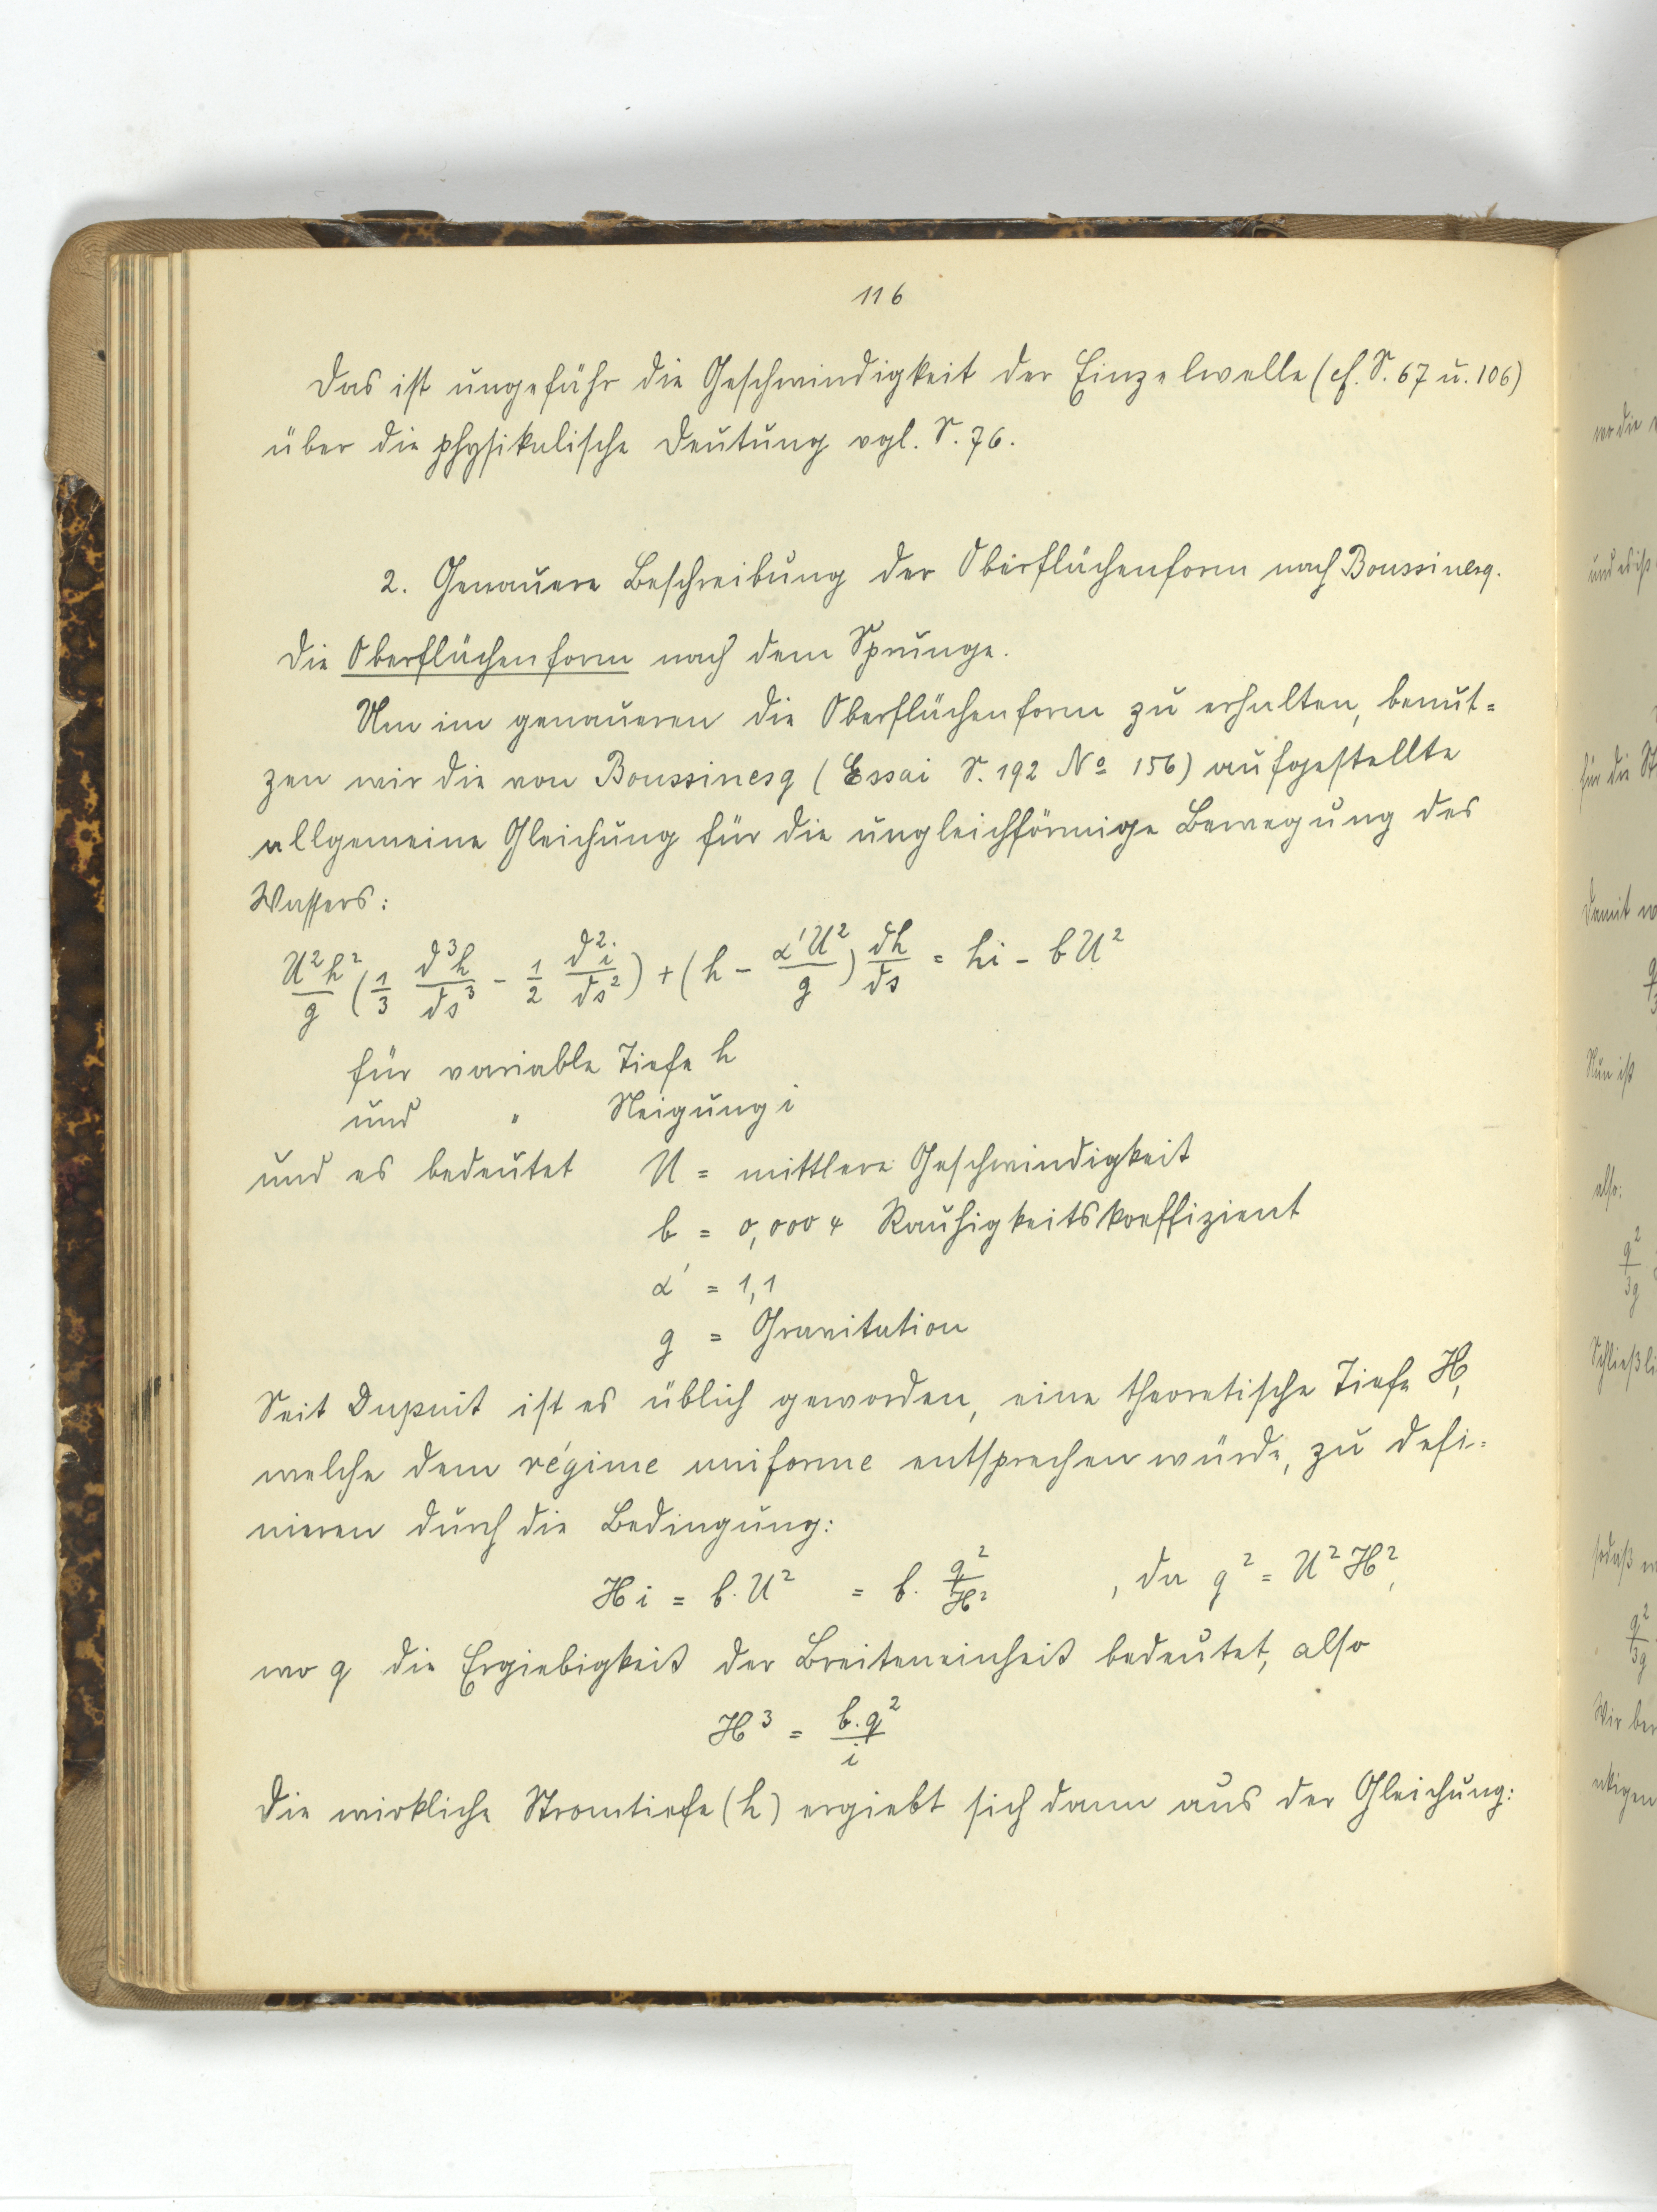 116
Das ist ungefähr die Geschwindigkeit der Einzelwelle (cf. S. 67 u. 106)
über die physikalische Deutung vgl. S. 76.
2. Genauere Beschreibung der Oberflächenform nach Boussinesq.
Die Oberflächenform nach dem Sprunge.
Um im genaueren die Oberflächenform zu erhalten, benut=
zen wir die von Boussinesq (Essai S. 192 No 156) aufgestellte
allgemeine Gleichung für die ungleichförmige Bewegung des
Wassers:
U²h²/g (1/3 d³h/ds³ - 1/2 d²i/ds²) + (h - α'U²/g) dh/ds = hi - bU²
für variable Tiefe h
und " Neigung i
und es bedeutet U = mittlere Geschwindigkeit
b = 0,0004 Rauhigkeitskoeffizient
α' = 1,1
g = Gravitation
Seit Dupuit ist es üblich geworden, eine theoretische Tiefe H,
welche dem régime uniforme entsprechen würde, zu defi-
nieren durch die Bedingung:
Hi = b·U² = b· q²/H² , da q² = U²H²,
wo q die Ergiebigkeit der Breiteneinheit bedeutet, also
H³ = b·q²/i
Die wirkliche Stromtiefe (h) ergiebt sich dann aus der Gleichung:
wo die
und es ist
für die St
Damit
Nun ist
also:
q²/3g
Schließli
sodaß
q²/3g
Wir ber